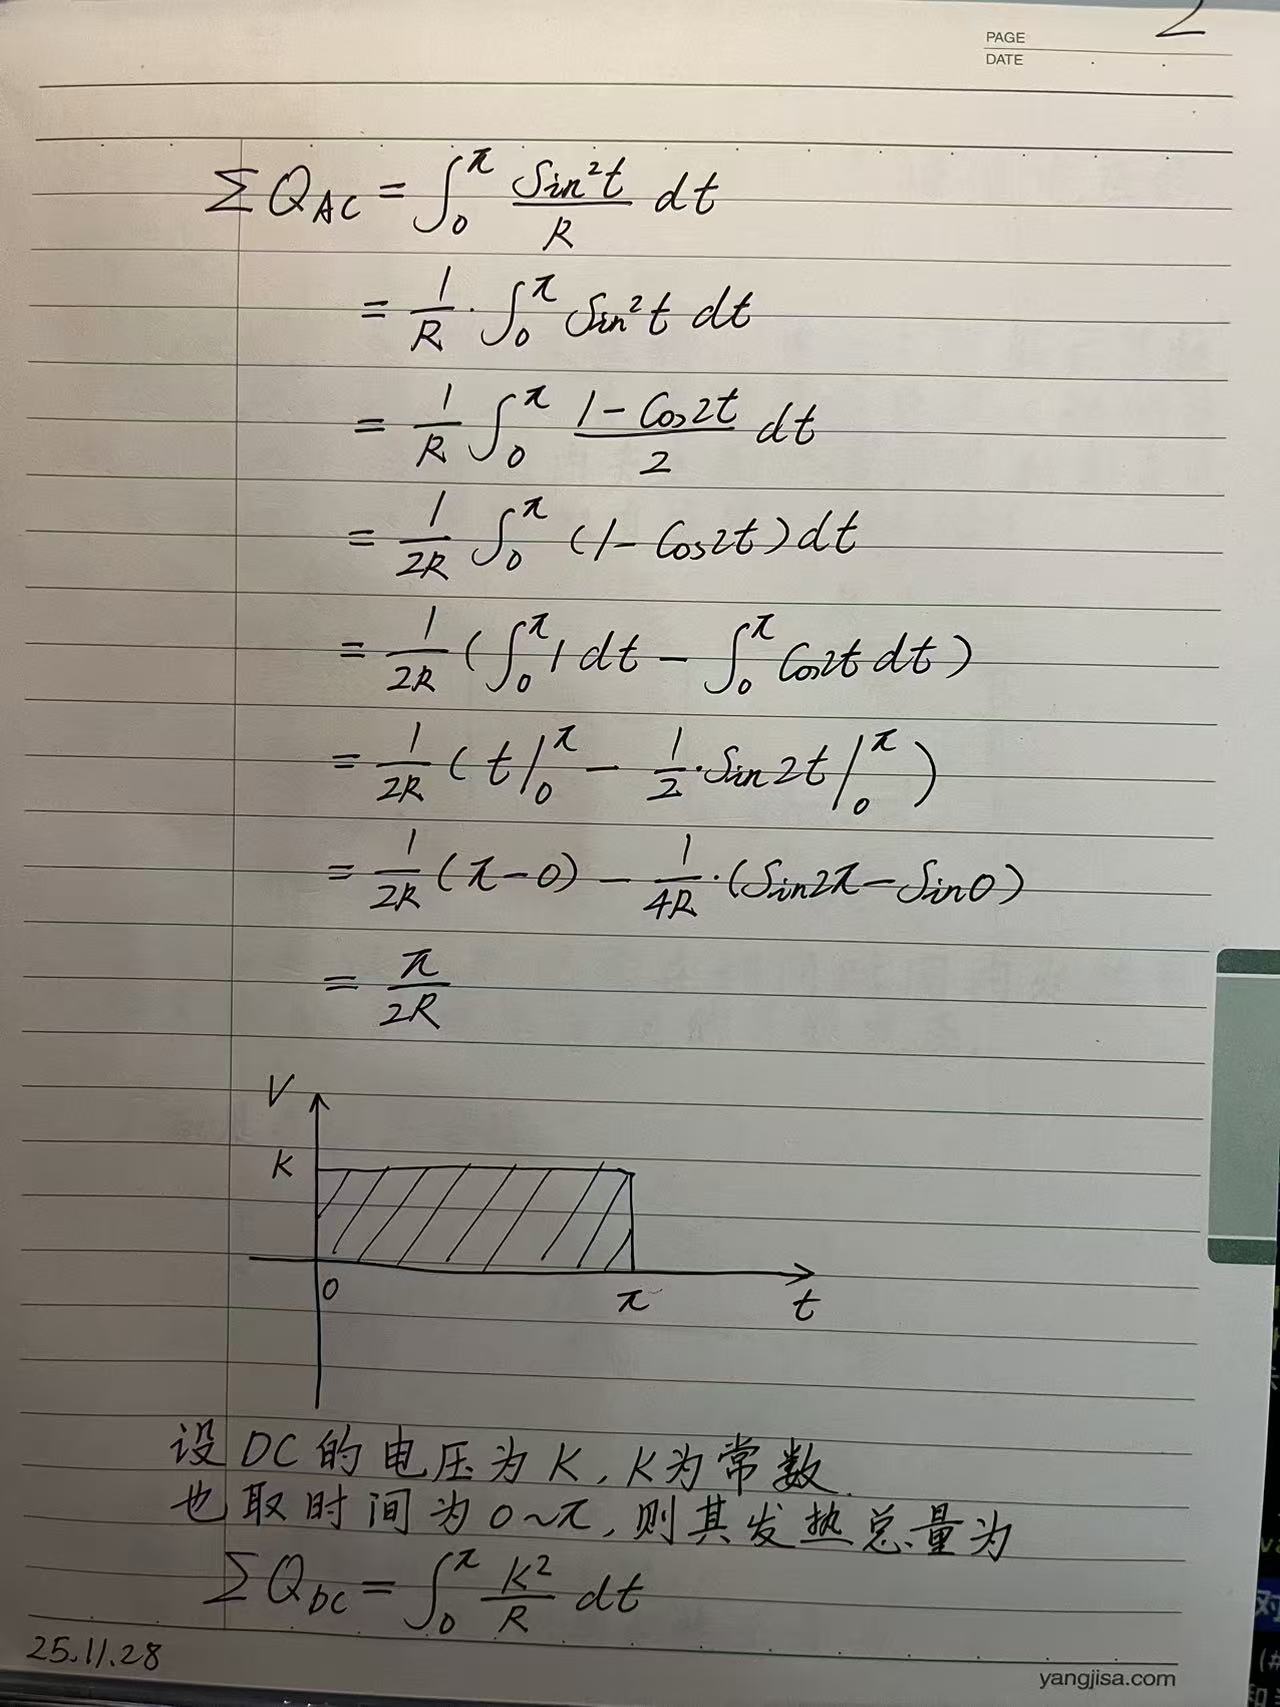 2
PAGE
DATE
∑Q_AC = ∫₀^π sin²t/R dt
= 1/R · ∫₀^π sin²t dt
= 1/R ∫₀^π (1-cos2t)/2 dt
= 1/2R ∫₀^π (1-cos2t)dt
= 1/2R (∫₀^π 1 dt - ∫₀^π cos2t dt)
= 1/2R (t|₀^π - 1/2·sin2t|₀^π)
= 1/2R (π-0) - 1/4R·(sin2π-sin0)
= π/2R
V
K
0
π
t
设DC的电压为K,K为常数.
也取时间为0~π,则其发热总量为
∑Q_DC = ∫₀^π K²/R dt
25.11.28
yangjisa.com